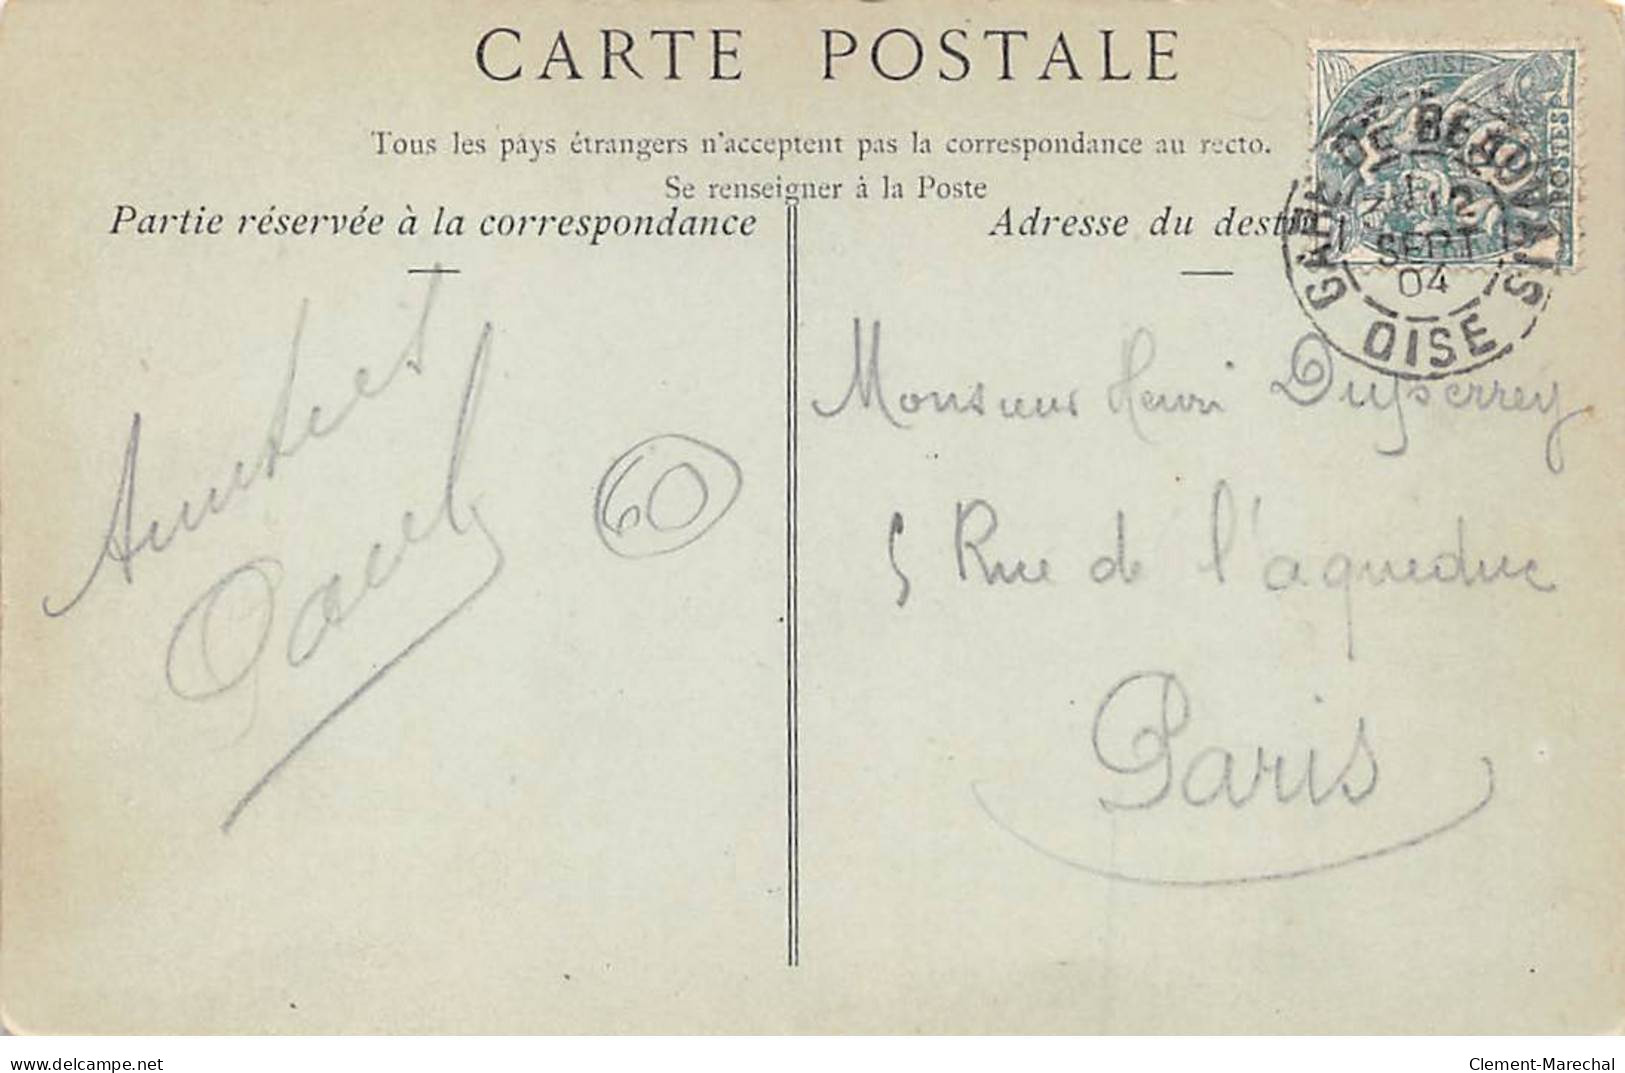 CARTE POSTALE
Tous les pays étrangers n'acceptent pas la correspondance au recto.
Se renseigner à la Poste
Partie réservée à la correspondance
Adresse du desti
POSTES
GARE DE BEAUVAIS
12
SEPT
04
OISE
60
Monsieur Henri
5 Rue de l'aqueduc
Paris
delcampe.net
Clement-Marechal